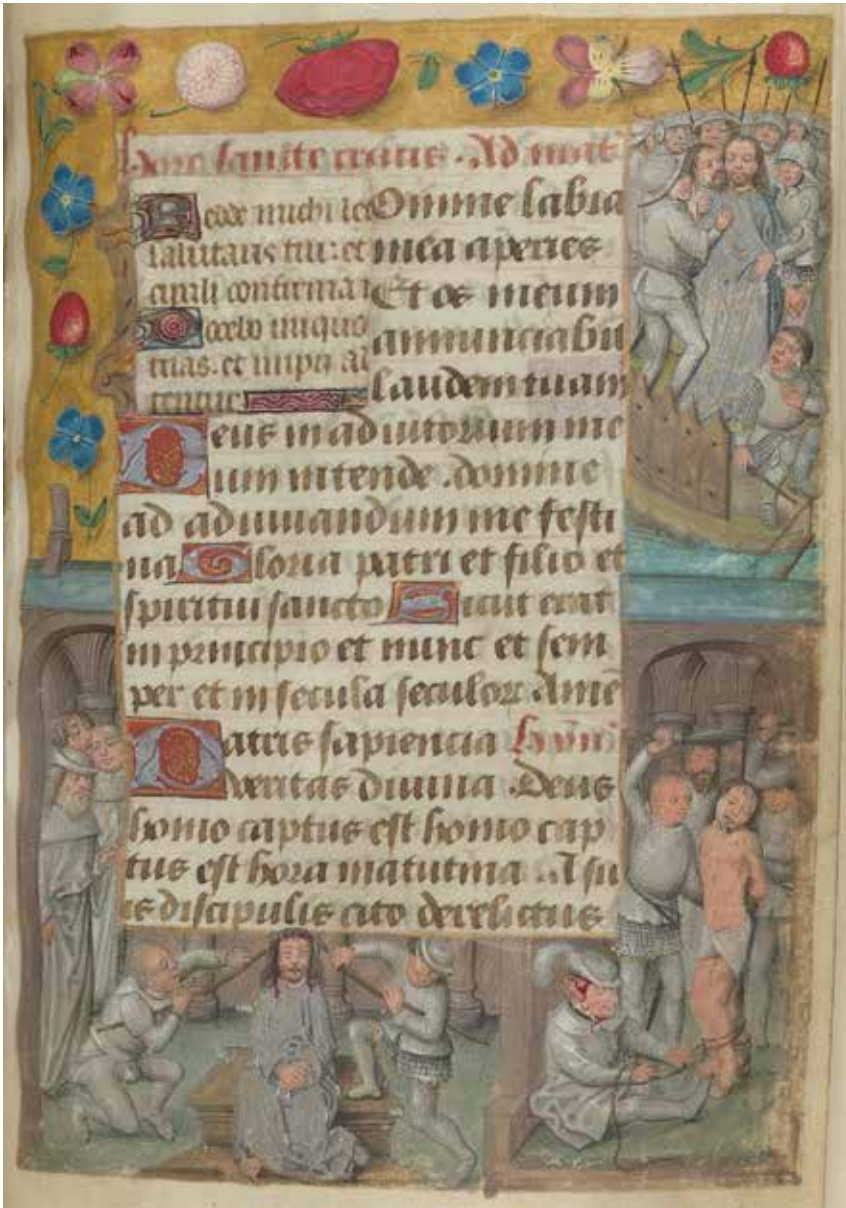 hore sancte crucis. Ad mat
Redde michi le
Domine labia
salutaris tui: et
mea aperies
Et os meum
Docebo iniquo
annunciabit
vias. et impii ad
laudem tuam
Deus in adiutorium me
um intende. domine
ad adiuuandum me festi
na Gloria patri et filio et
spiritui sancto Sicut erat
in principio et nunc et sem
per et in secula seculor Amē
Patris sapiencia hymn
veritas diuina Deus
homo captus est homo cap
tus est hora matutina A su
is discipulis cito derelictus